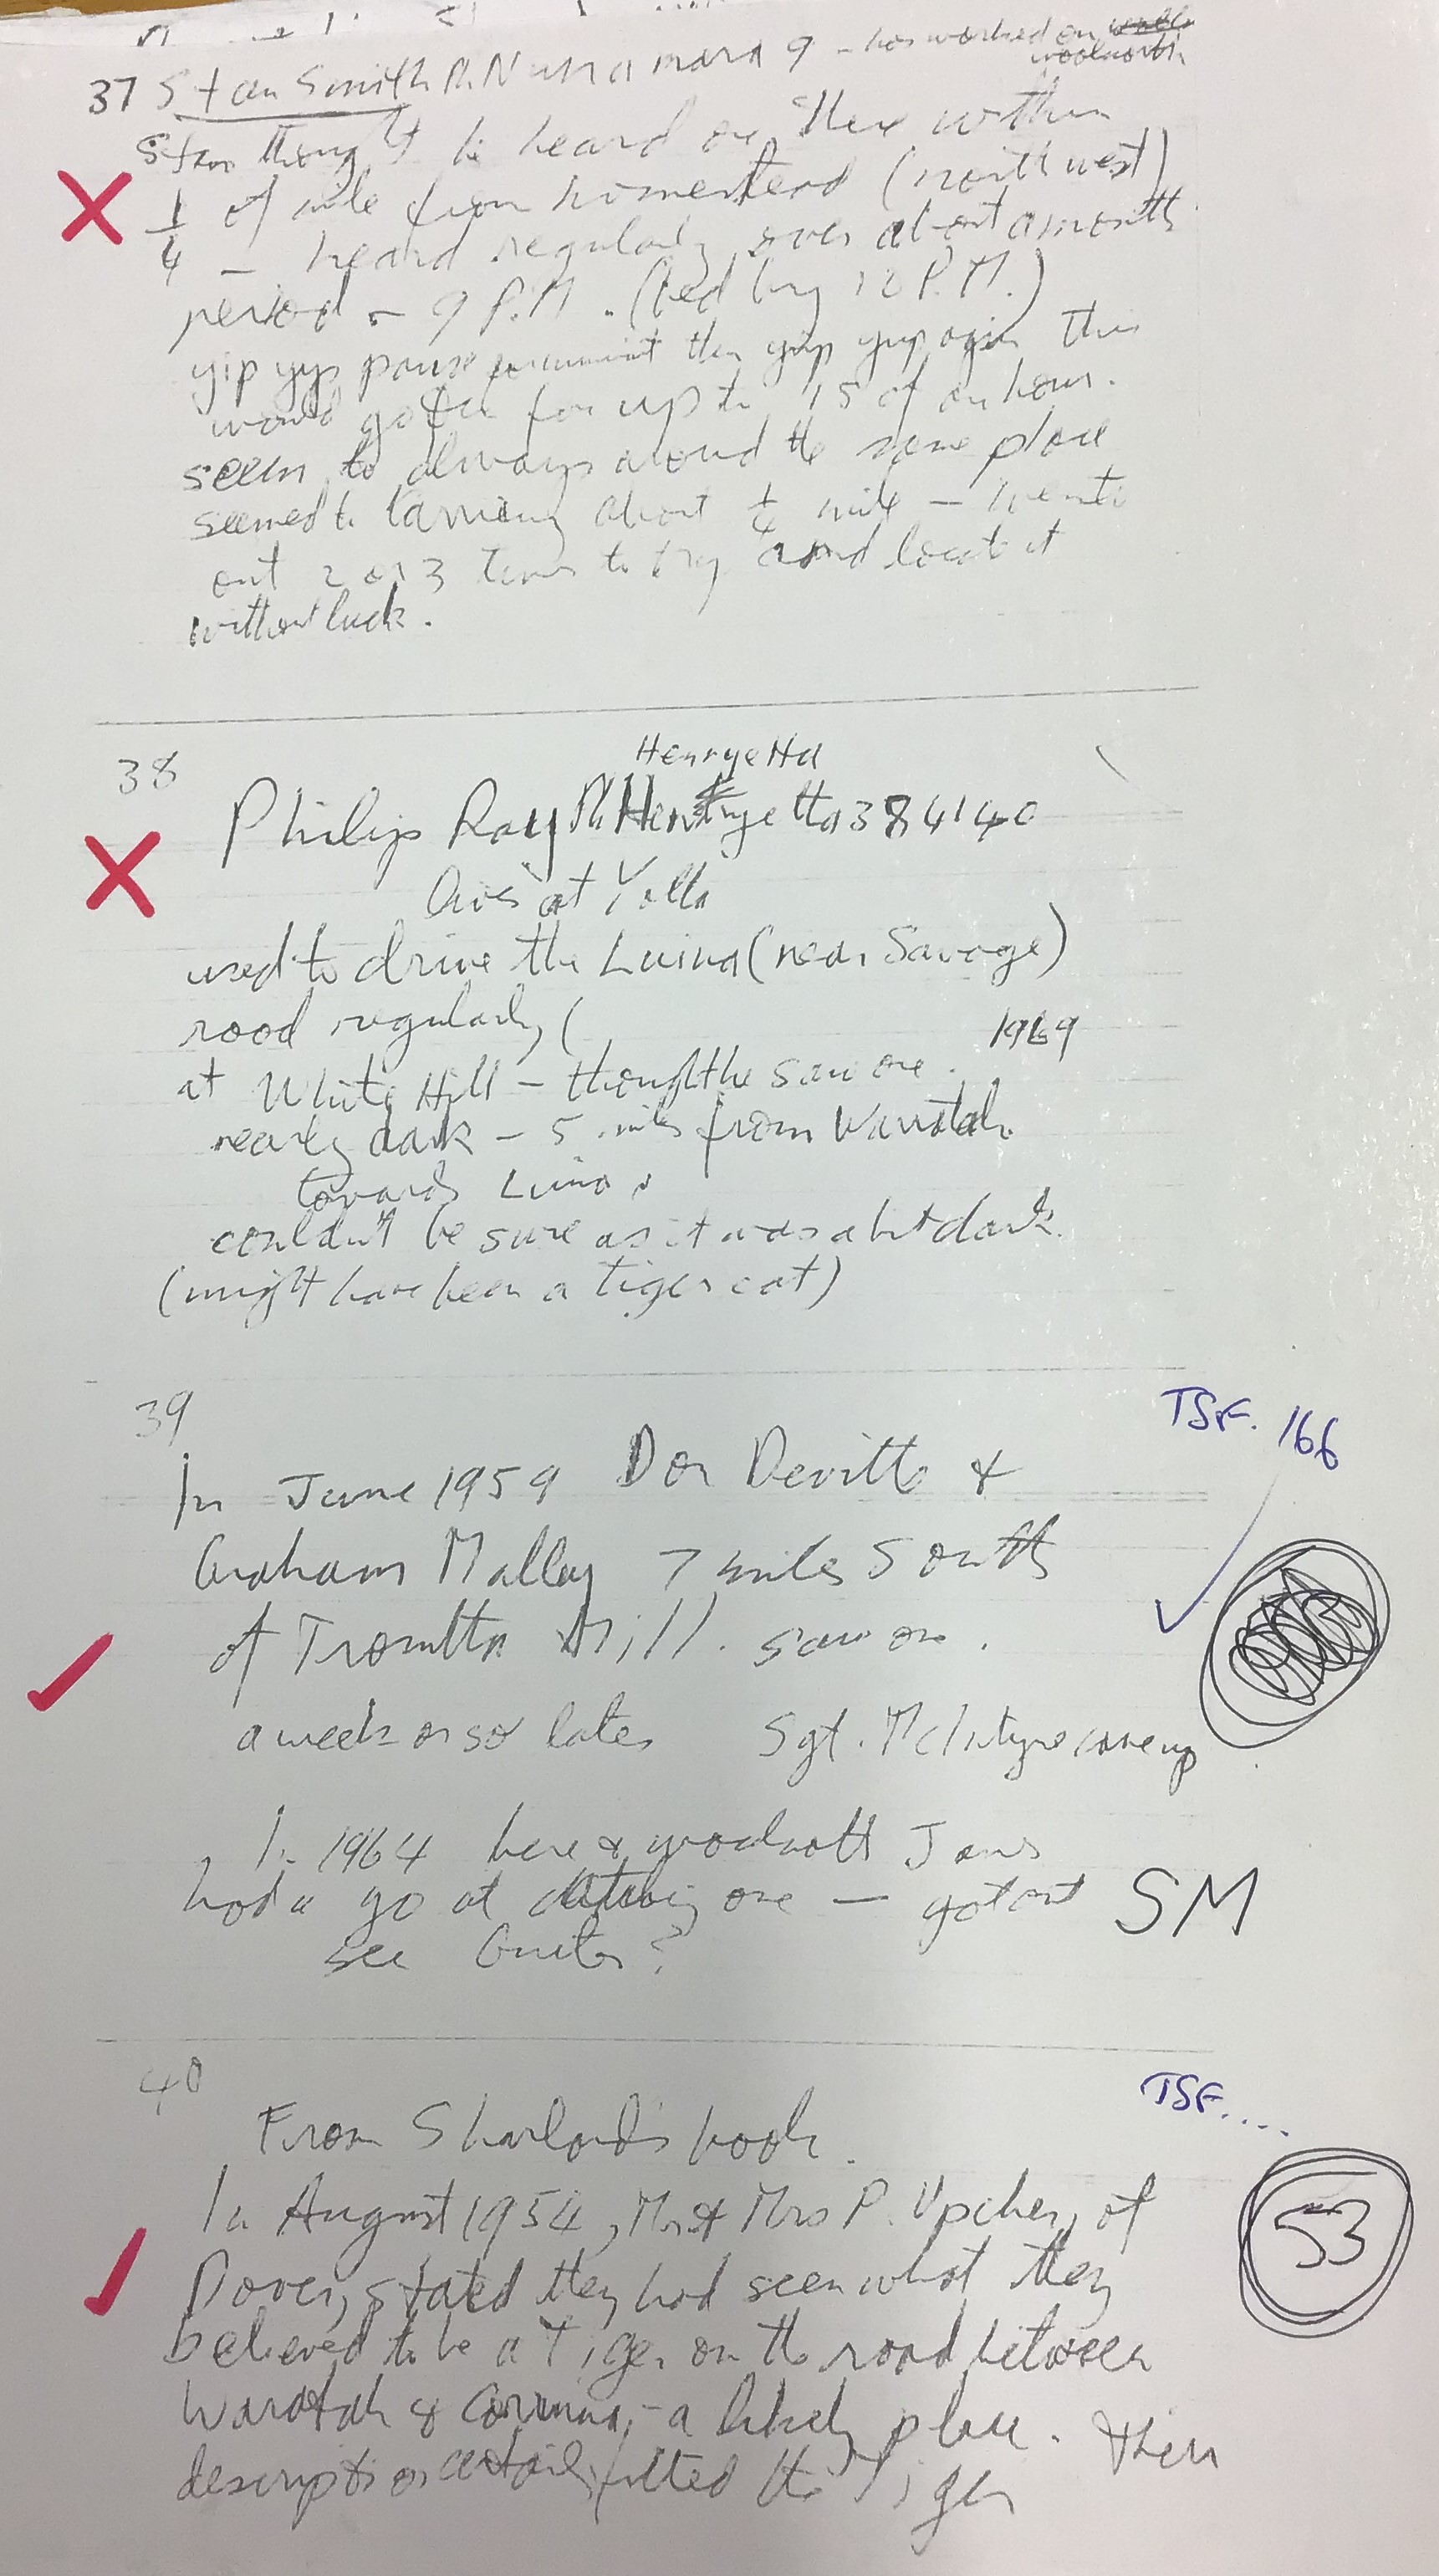 37 Stan Smith Ph Nunamara 9 - has worked on
woolnorth
Stan thought he heard one there within
1/4 of mile from homestead (north west)
- heard regularly over about a month
period - 9 P.M. (bed by 10 P.M.)
yip yip pause then yip yip again This
would go for up to 15 of an hour.
seem to always around the same place
seemed to carrying about 1/4 mile - went
out 2 or 3 times to try and locate it
without luck.
38
Henryetta
Philip Ray Ph Henryetta 384140
lives at Yolla
used to drive the Luina (near Savage)
road regularly (
1969
at White Hill - thought he saw one.
nearly dark - 5 miles from Waratah
towards Luina
couldn't be sure as it was a bit dark.
(might have been a tiger cat)
39
TSF. 166
In June 1959 Don Devitt &
Graham Malley 7 miles South
of Trowutta Mill. saw one.
a week or so later Sgt. McIntyre came up
In 1964 here & woolnorth Jans
had a go at catching one - got out
SM
see
40
TSF....
From Sharland's book.
53
In August 1954, Mr & Mrs P. Upcher, of
Dover, stated they had seen what they
believed to be a Tiger on the road between
Waratah & Corinna, - a likely place. Their
description certainly fitted the Tiger